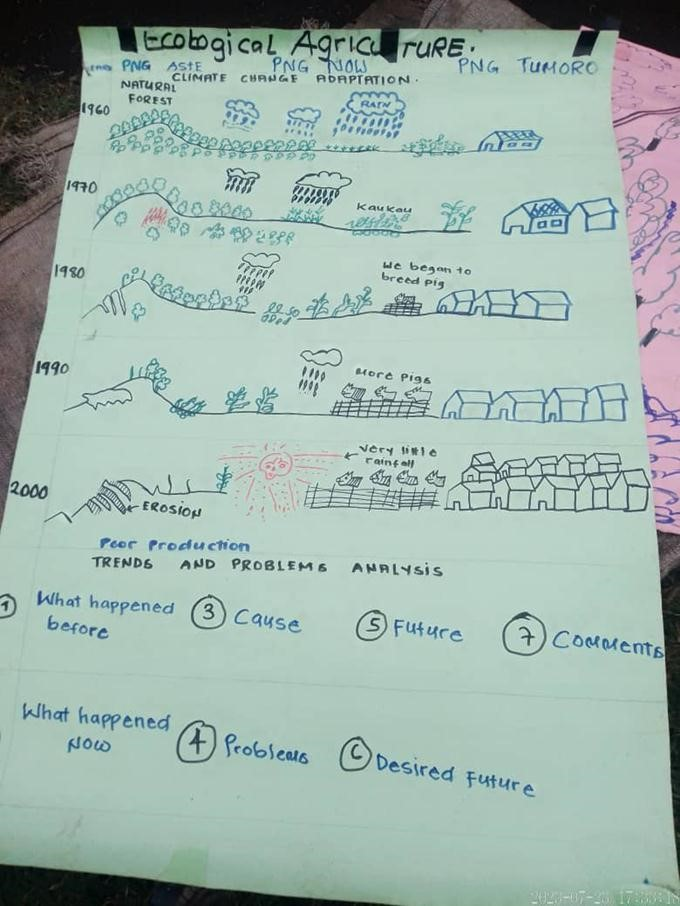 Ecological AgricuLTURE.
PNG ASTE PNG NOW PNG TUMORO
CLIMATE CHANGE ADAPTATION.
NATURAL
FOREST
1960
RAIN
1970
Kaukau
1980
We began to
breed pig
1990
More Pigs
2000
Very little
rainfall
EROSION
Poor Production
TRENDS AND PROBLEMS ANALYSIS
1 What happened
before
3 Cause
5 Future
7 Comments
What happened
Now
4 Problems
6 Desired Future
2023-07-23 17:33:18